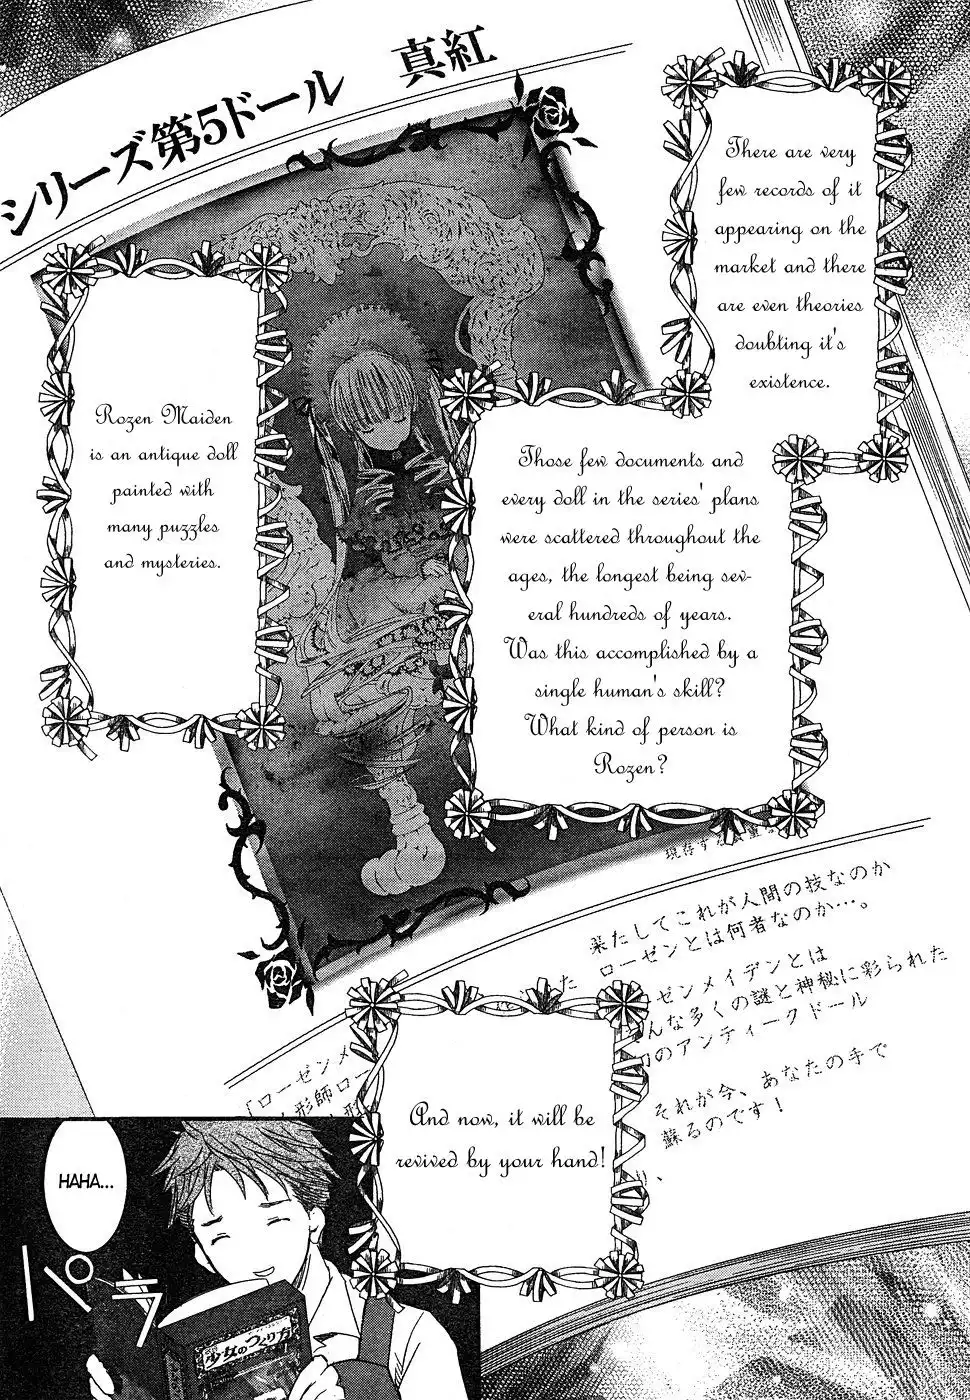 シリーズ第5ドール 真紅
There are very
few records of it
appearing on the
market and there
are even theories
doubting it's
existence.
Those few documents and
every doll in the series' plans
were scattered throughout the
ages, the longest being sev-
eral hundreds of years.
Was this accomplished by a
single human's skill?
What kind of person is
Rozen?
Rozen Maiden
is an antique doll
painted with
many puzzles
and mysteries.
現存する
果たしてこれが人間の技なのか
ローゼンとは何者なのか…。
ゼンメイデンとは
んな多くの謎と神秘に彩られた
のアンティークドール
それが今、あなたの手で
蘇るのです!
「ローゼンメ
形師ロー
And now, it will be
revived by your hand!
HAHA...
パラ
少女のつくり方